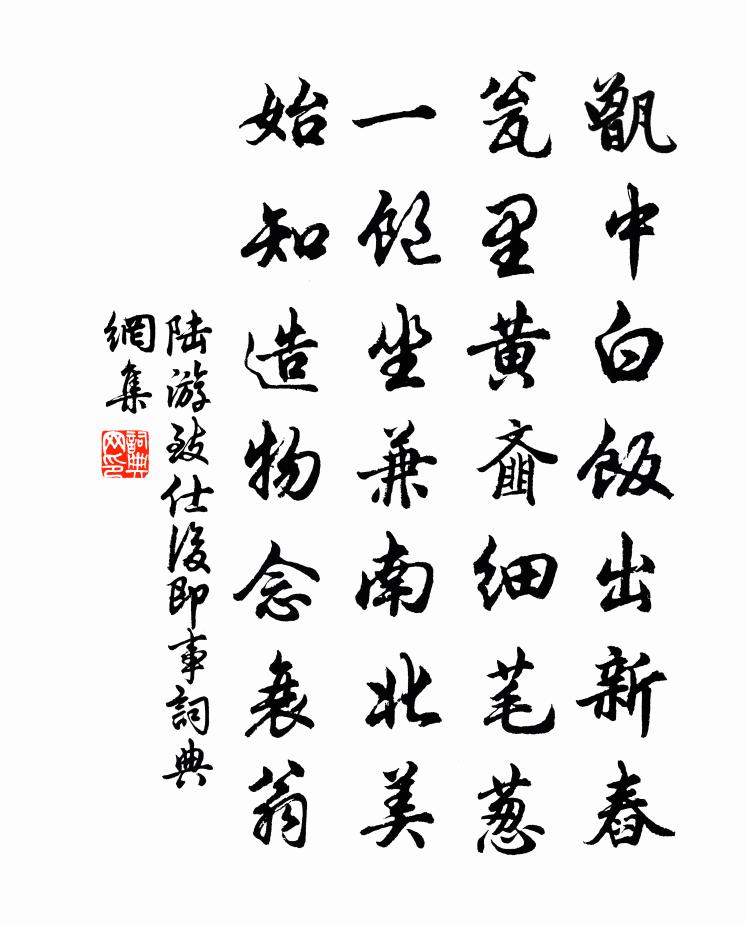 甑中白饭出新舂
瓮里黄齑细芼葱
一饱坐兼南北美
始知造物念衰翁
陸游致仕後即事詞典
網集
詞典网印